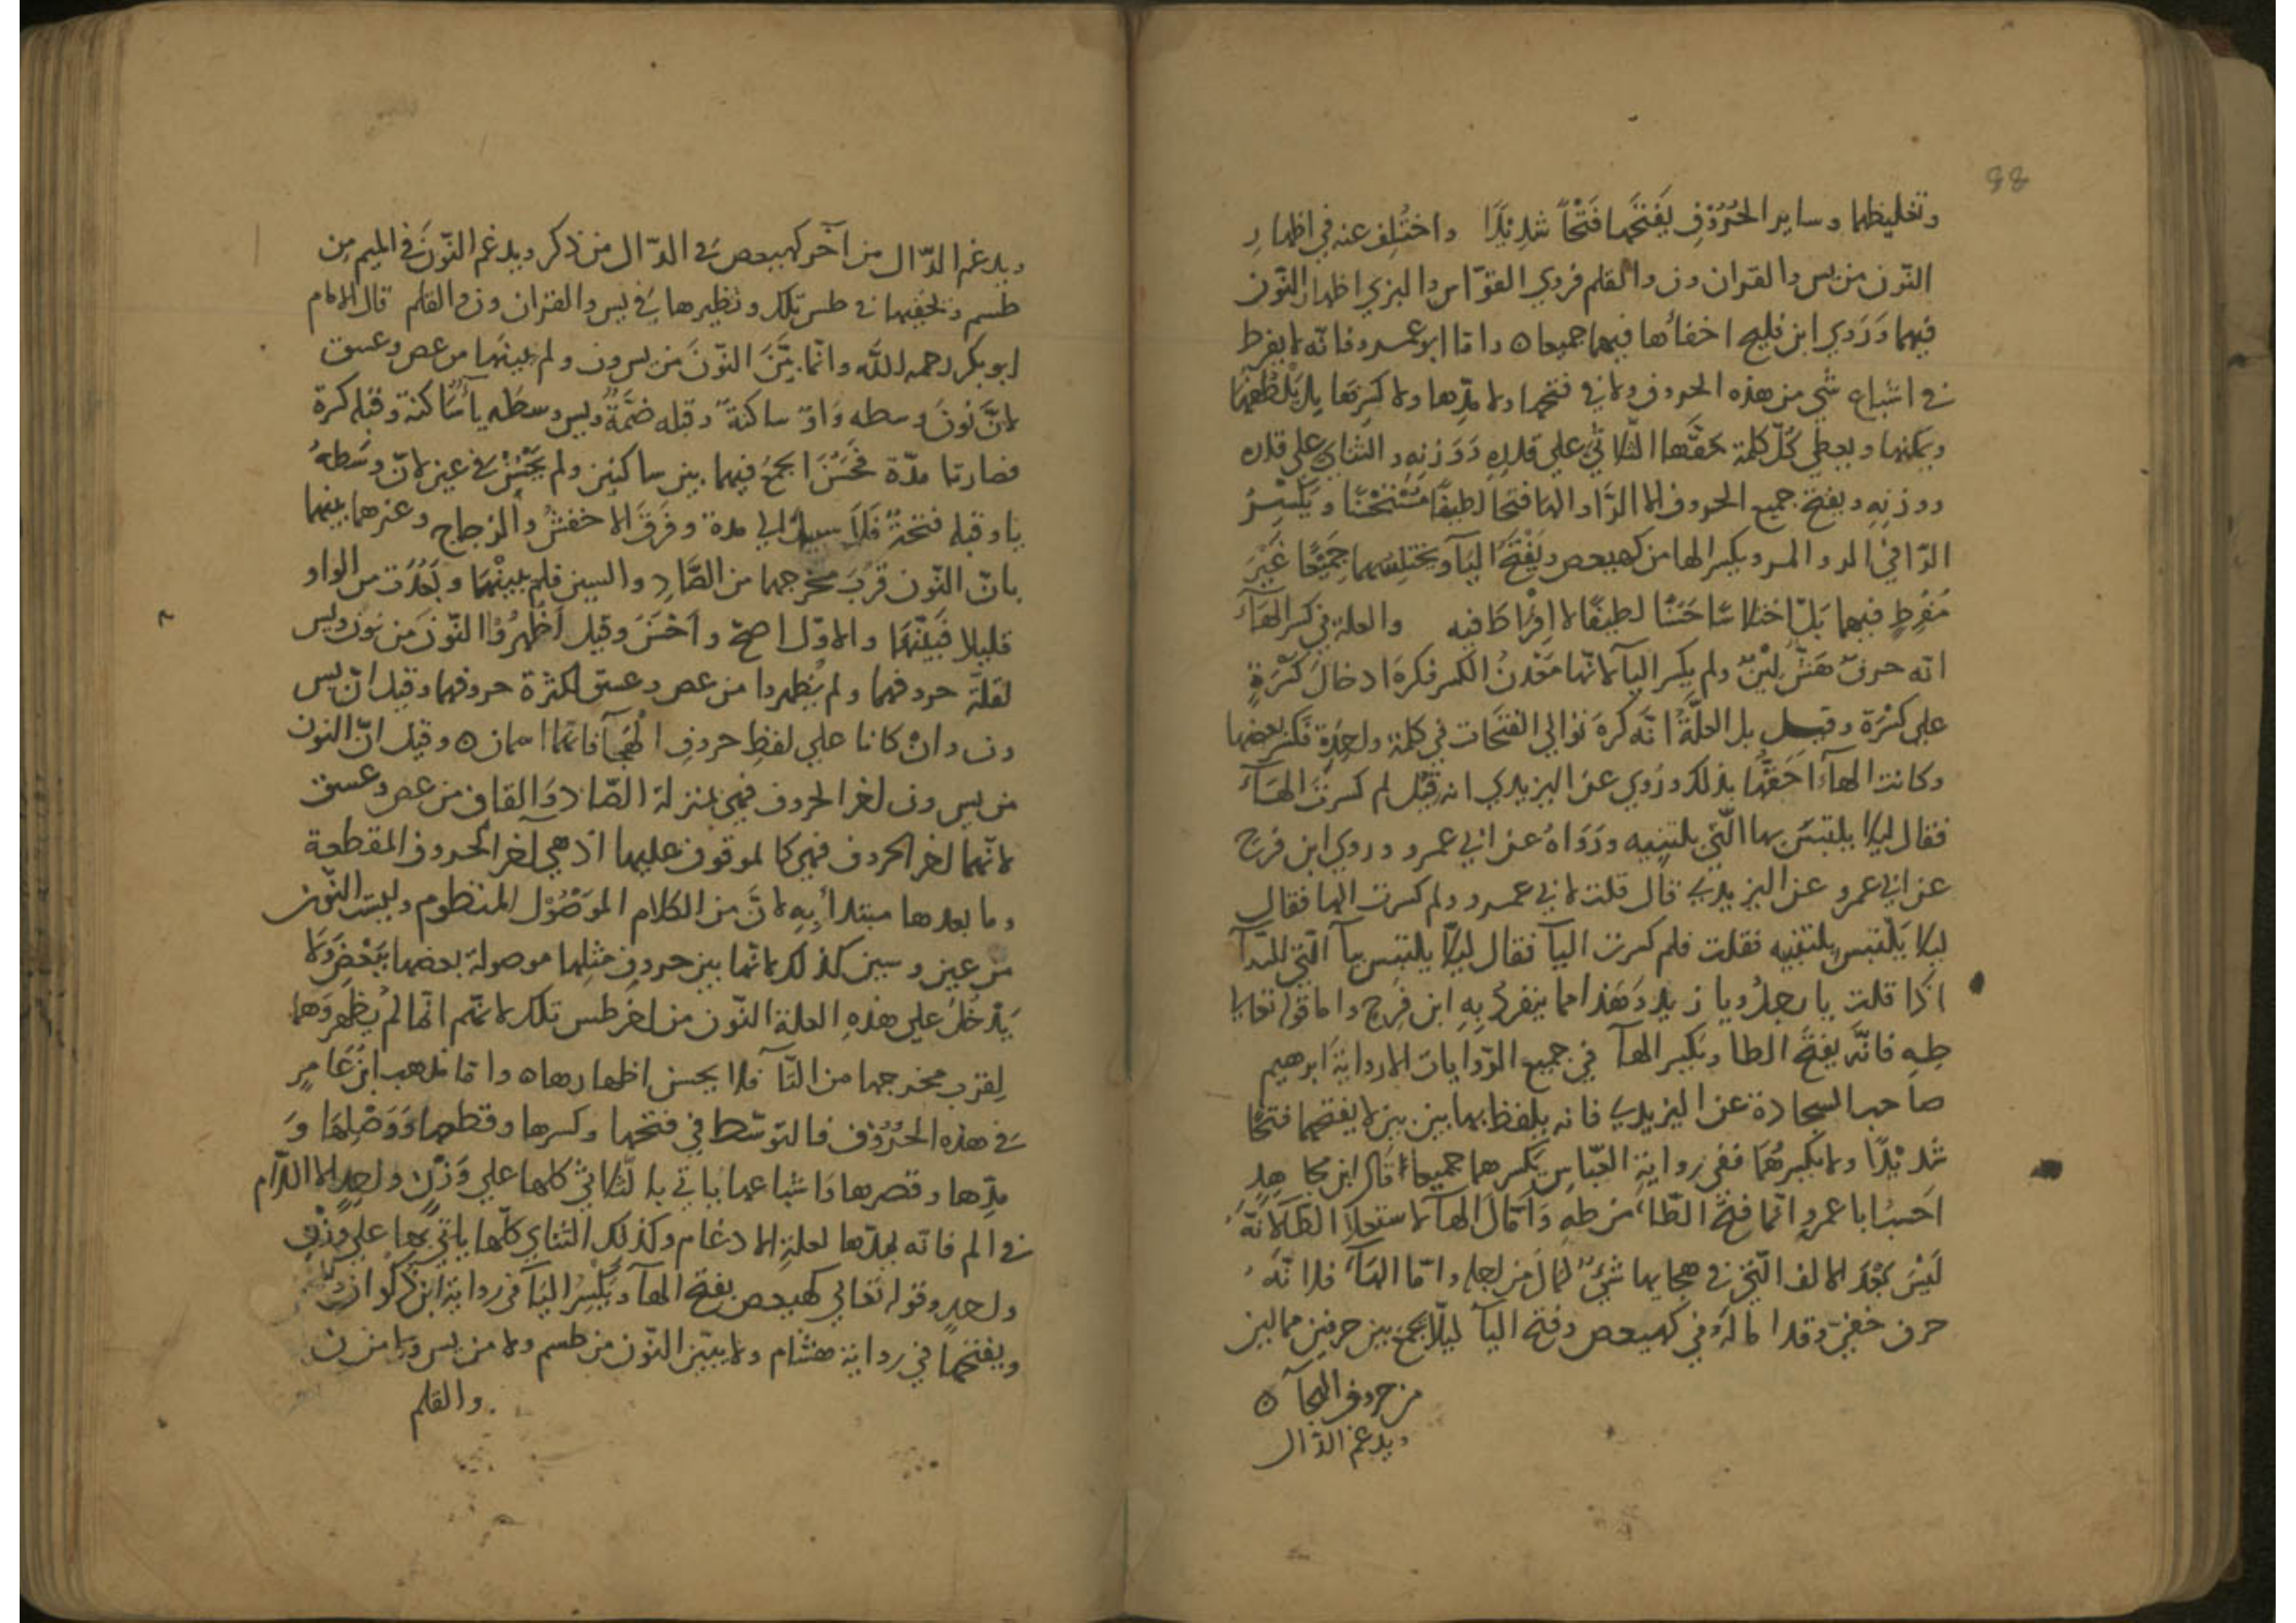 88
وتغليظها وساير الحُرُوْفِ يَفتَحُهَا فَتْحًا شَدِيْدًا واختُلِف عنه في اظهارِ
النّون من يس والقران ون والقلم فروي القوّاس والبزي اظهار النّون
فيهما وَرَوي ابن فليح اخفاها فيهما جميعا ه واما ابو عمرو فانه لا يفرط
في اشباع شي من هذه الحروف ولا في فتحها ولا مدّها ولا كسرها بل يَلْفظُ بها
ويمكنها ويعطي كُلّ كلمة حقّها الثّلاثيّ علي قدرِه وَوَزنِهِ والثنايَ علي قدره
ووزنِهِ ويفتح جميع الحروف الا الرَّا والها فتحًا لطيفًا مُسْتَحْسَنًا ويَكْسِرُ
الرّا في الر والمر ويكسر الها من كهيعص ويَفْتَحُ اليَآ ويختلسهما جَمِيْعًا غَيْرَ
مُفْرِطٍ فيهما بَلْ اختلاسًا حَسَنًا لطيفًا لا اِفْرَاطَ فيه والعلة في كسر الهَآءِ
انّه حرفٌ هَشٌّ لَيِّنٌ ولم يكسر اليآ لانّها مَعْدنُ الكسر فكرهَ ادخالَ كَسْرَةٍ
علي كسْرَة وقيل بل العلَّةُ انّه كرهَ توالي الفتحَات في كلمة واحِدَةٍ فكسَرَ بعضها
وكانت الهآءُ احَقّهَا بذلك ورُوي عن اليزيدي انه قِيْل لم كسرتَ الهَآءَ
فقال لِيَلا يلتبسَ بها الّتي للتنبيه وَرَوَاهُ عن ابي عمرو وروي ابن فرح
عن ابي عمرو عن اليزيدي قال قلت لابي عمرو ولم كسرت الها فقال
ليَلا يَلْتبس بالتنبيه فقلت فلم كسرت اليآ فقال ليَلّا يلتبس بيآ الّتي للندآ
اذا قلت يا رجلُ ويا زيد وَهَذا مما ينفردُ بِهِ ابن فرح واما قوله تعالي
طهِ فانّه يفتَحُ الطا ويَكسر الهآ في جميع الرّوايات الا رواية ابرهيم
صاحب السجادة عن اليزيدي فانه يلفظ بها بين بين لا يفتحهما فتحًا
شديْدًا ولا يكسرهُمَا ففي روايةِ العبّاس يَكسرهما جميعًا قال ابن مجاهِدٍ
اَحْسِبُ ابا عمرو انّما فتح الطّاءَ من طهِ وَاَمَالَ الهآ لاستعلاء الطَآ لانّهُ
لَيْسَ بَعْدَ الالف الّتي في هجايها شيءٌ يُمَالُ من اجله وامّا الهآءُ فلانّهُ
حرف خفيّ وقد امالهُ في كهيعص وفتح اليآ ليلّا يجمع بين حرفين ممالين
من حروف الهجآء ه
ويدغم الدّال
ويدغم الدّال من آخر كهيعص في الدّال من ذكر ويدغم النّونَ في الميم من
طسم ويخفيها في طس تلك ونظيرها في يس والقران ون والقلم قال الامام
ابو بكر رحمه اللّه وانّما بيَّنَ النّونَ من يس ون ولم يبينها من عص وعسق
لانَّ نُونَ وسطه وَاوٌ ساكنةٌ وقبله ضَمَّةٌ ويس وسطه يآءٌ سَاكنة وقبله كسرة
فصارتا مدّة فحَسُنَ الجمعُ فيهما بين ساكنين ولم يَحْسُنْ في عين لانّ وسَطهُ
يا وقبله فتحةٌ فَلاَ سبيل الي مدة وفرَقَ الاخفشُ والزجاج وغيرهما بينهما
بانّ النّون قرُبَ مخرجها من الصَّادِ والسين فلم يبينْهَا وبَعُدَت من الواو
قليلا فَبَيَّنهَا والاوّل اصحّ وأحْسَنُ وقيل اَظهرُوا النّونَ من نونَ ويس
لقلّة حروفهما ولم يُظهروا من عص وعسق لكثرة حروفهما وقيل انّ يس
ون وانْ كانا علي لفظِ حروفِ الهجآ فانّهما اسمان ه وقيل انّ النون
من يس ون اخر الحروف فهي بمنزلة الصّاد وَالقاف من عص وعسق
لانّهما اخر الحروف فهي كالموقوف عليها اذ هي آخر الحروف المقطعة
وما بعدها مبتدأ بِهِ لانَّ من الكلام الموْصُوْل المنظوم وليست النّون
من عين وسين كذلك لانّها بين حروفٍ مثلها موصولة بعضها ببَعْضٍ وَلا
يَدْخُلُ علي هَذهِ العلة النّون من اخر طس تلك لانّهم انّما لم يظهروهَا
لِقرب مخرجها من التّآءِ فلا يحسن اظهارها ه واما مَذهبُ ابن عَامِرٍ
في هذه الحُرُوْف فالتوسّط في فتحها وكسرها وقطعها وَوَصْلِهَا وَ
مدّها وقصرها وَاشباعها يَاتي بالثّلاثيّ كلها علي وَزْنٍ واحِدٍ الا اللّام
في الم فانه يمدّها لعلةِ الادغام وكذلك الثنايَ كلّها ياتي بها علي وزْنٍ
واحدٍ وقوله تعالي كهيعص بفتح الهآ ويَكْسِرُ اليَآ في رواية ابن ذكوان
ويفتحهما في رواية هشام ولا يبيّن النّون من طسم ولا من يس ولا من ن
والقلم